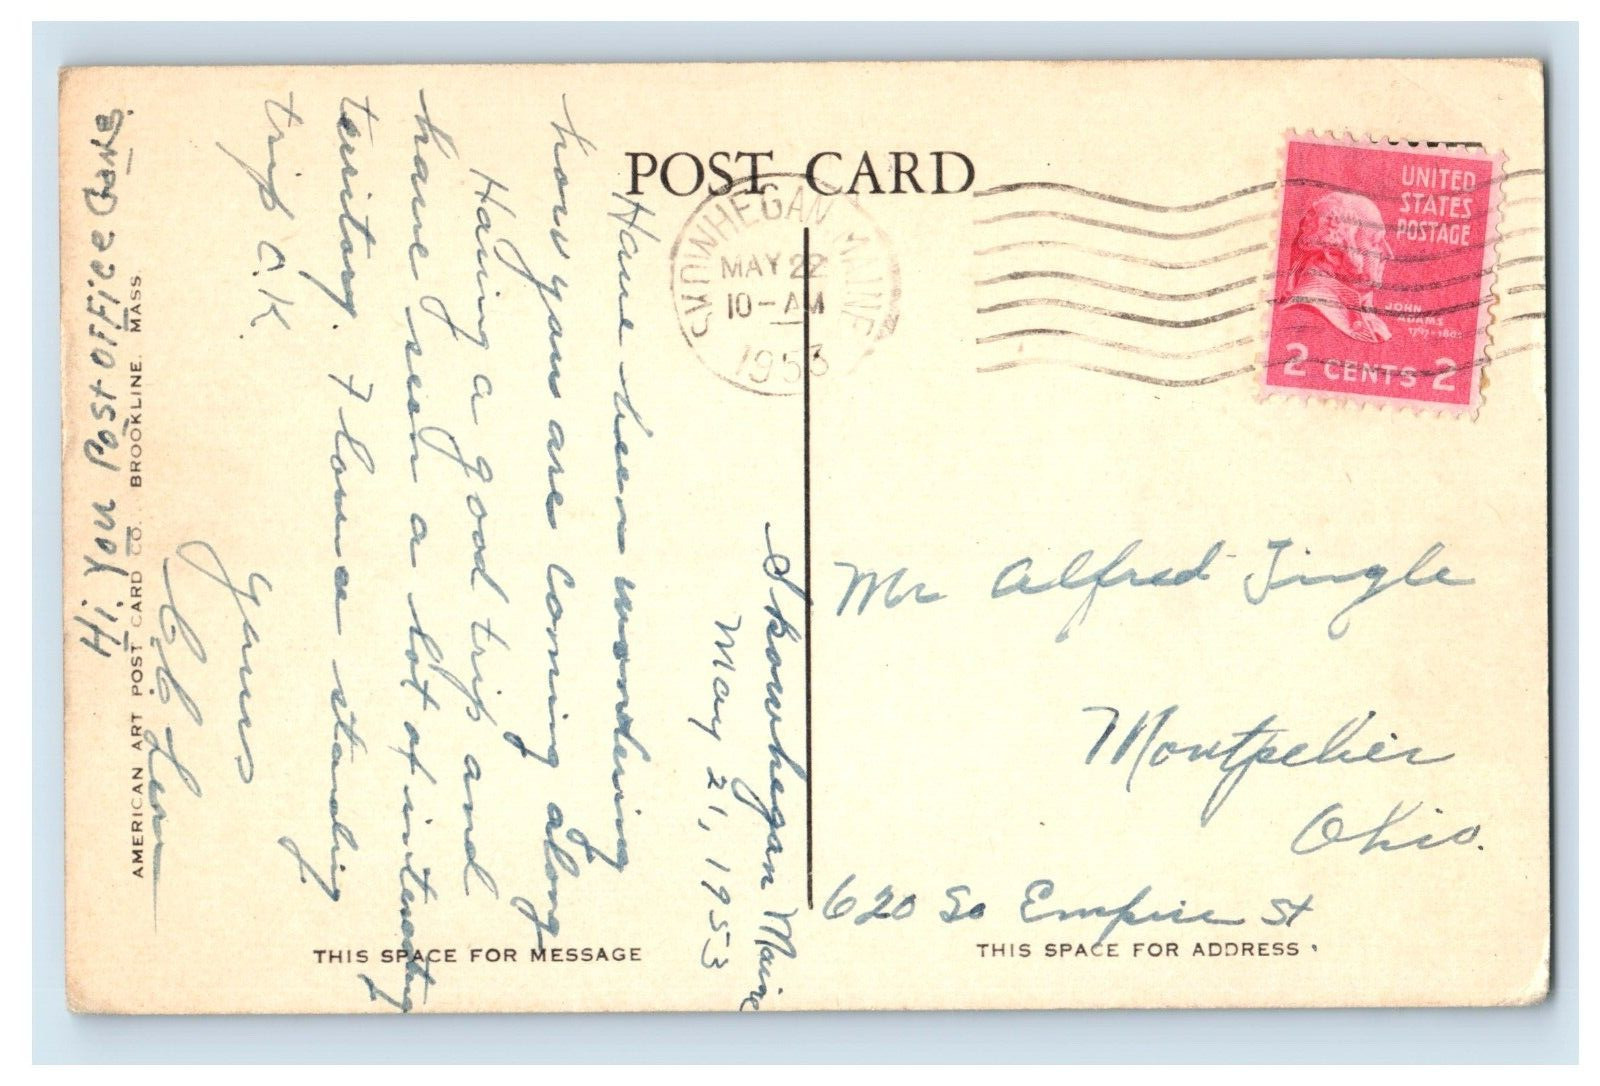 POST CARD
SKOWHEGAN, MAINE
MAY 22
10-AM
1953
UNITED
STATES
POSTAGE
JOHN
ADAMS
1797-1801
2 CENTS 2
Skowhegan Maine
May 21, 1953
Have been wondering
how you are coming along
Having a good trip and
have seen a lot of interesting
territory. Florence standing
trip O.K.
Yours
Hi. You Post Office
AMERICAN ART POST CARD CO., BROOKLINE, MASS.
Mr Alfred Tingle
Montpelier
Ohio.
620 So Empire St
THIS SPACE FOR MESSAGE
THIS SPACE FOR ADDRESS